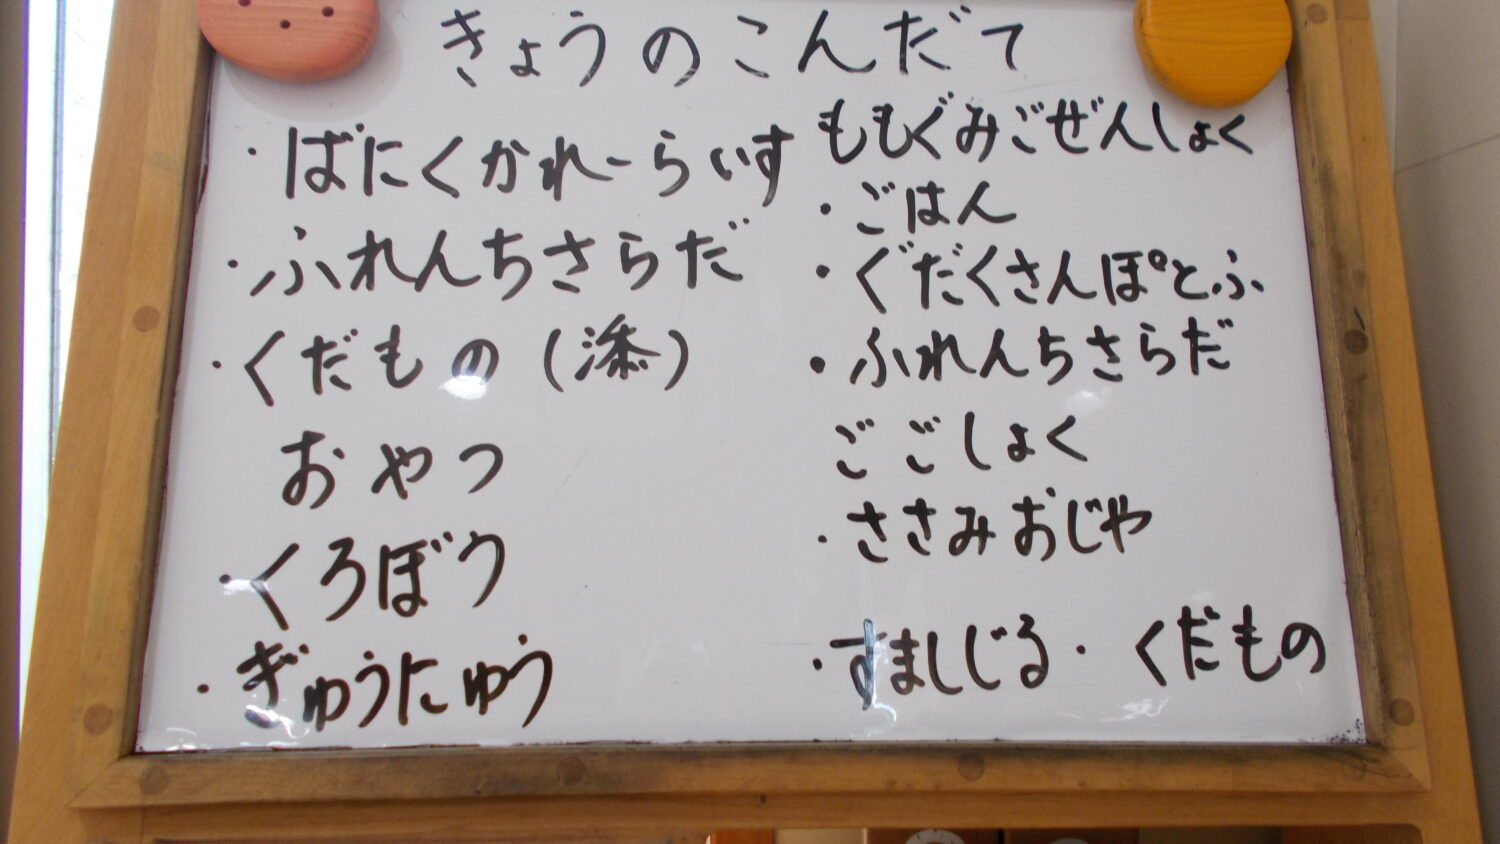 きょうのこんだて
・ばにくかれーらいす
・ふれんちさらだ
・くだもの(添)
おやつ
・くろぼう
・ぎゅうにゅう
ももぐみごぜんしょく
・ごはん
・ぐだくさんぽとふ
・ふれんちさらだ
ごごしょく
・ささみおじや
・すましじる・くだもの